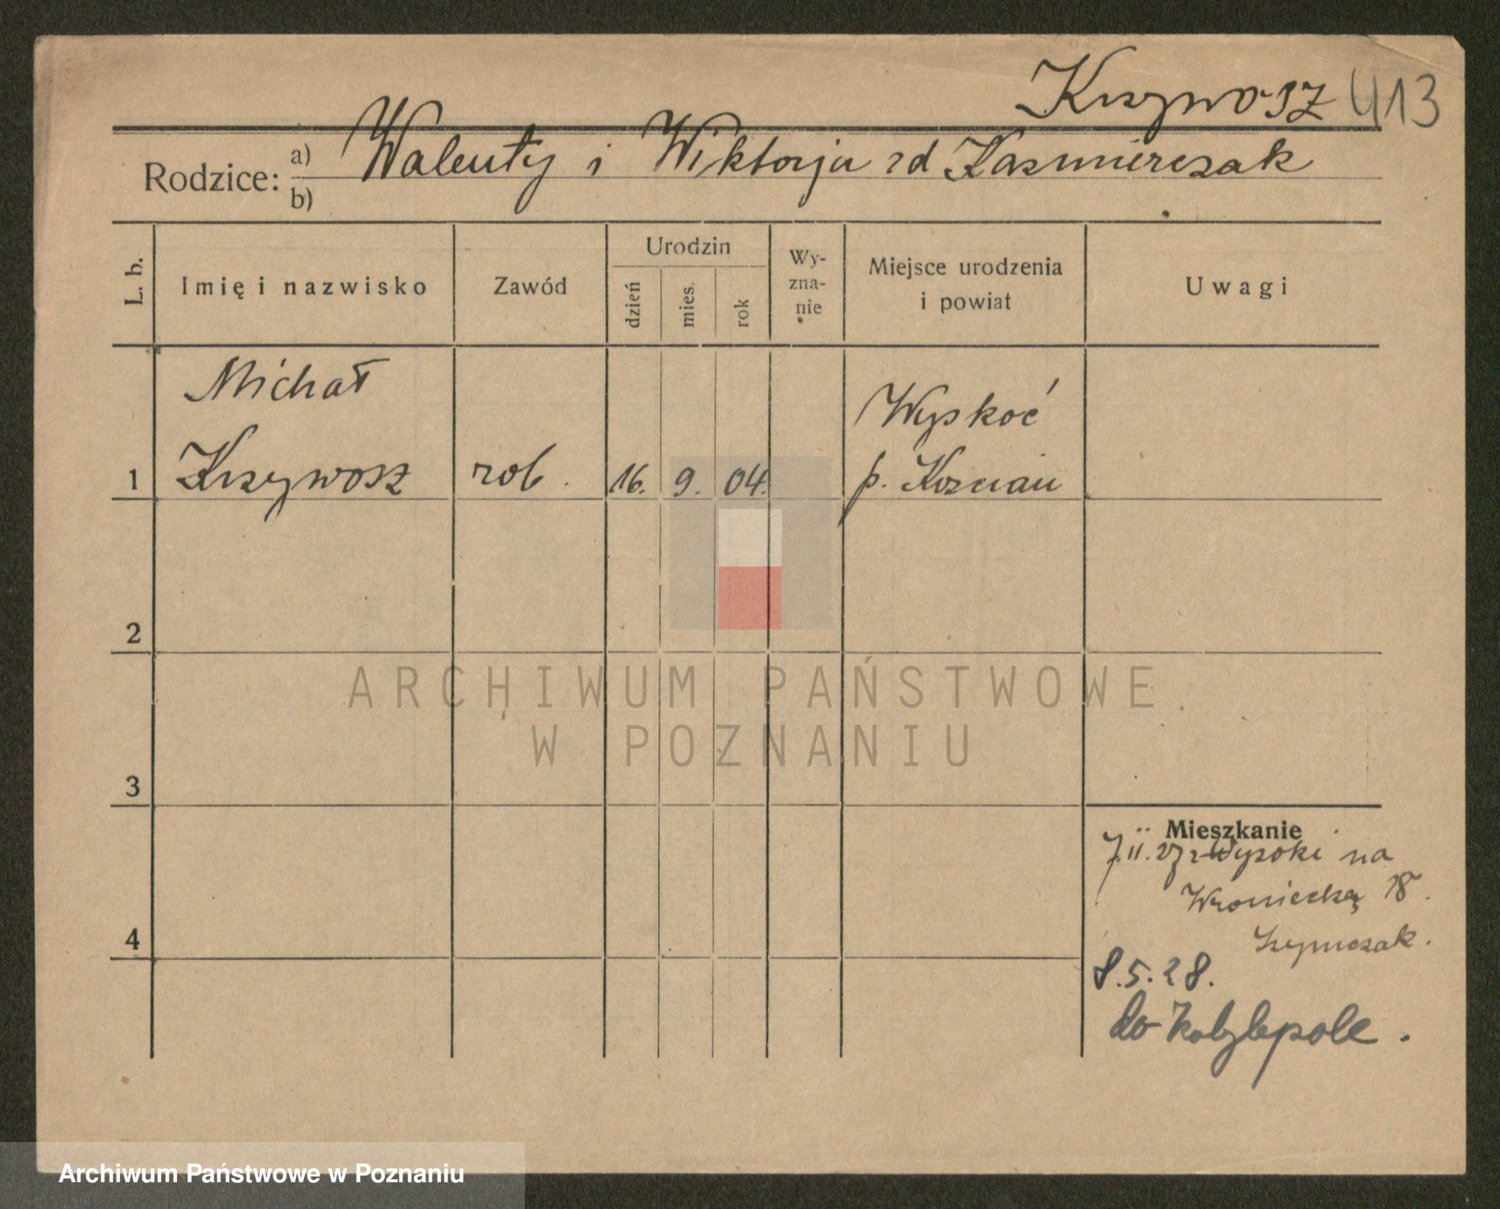 Krzywosz 413
Rodzice: a) Walenty i Wiktorja zd Kazmierczak
b)
L. b. Imię i nazwisko Zawód Urodzin dzień mies. rok Wy-zna-nie Miejsce urodzenia i powiat Uwagi
Michał Wyskoć
1 Krzywosz rob. 16. 9. 04. p. Kościan
2
ARCHIWUM PAŃSTWOWE
W POZNANIU
3
Mieszkanie
7.II.27 z Wysoki na
Wroniecką 18.
4 Szymczak.
8.5.28.
do Kobylepole.
Archiwum Państwowe w Poznaniu